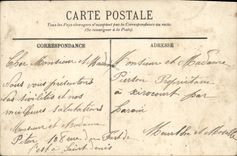 CARTE POSTALE
Tous les Pays étrangers n'acceptent pas la Correspondance au recto.
(Se renseigner à la Poste)
CORRESPONDANCE
ADRESSE
Cher Monsieur et Madame
Nous vous présentons
et nos
meilleurs salutations
Monsieur et Madame
rue du Fort de
l'Est à Saint Denis
Monsieur et Madame
Pierson Propriétaire
à Xirocourt par
Meurthe et Moselle